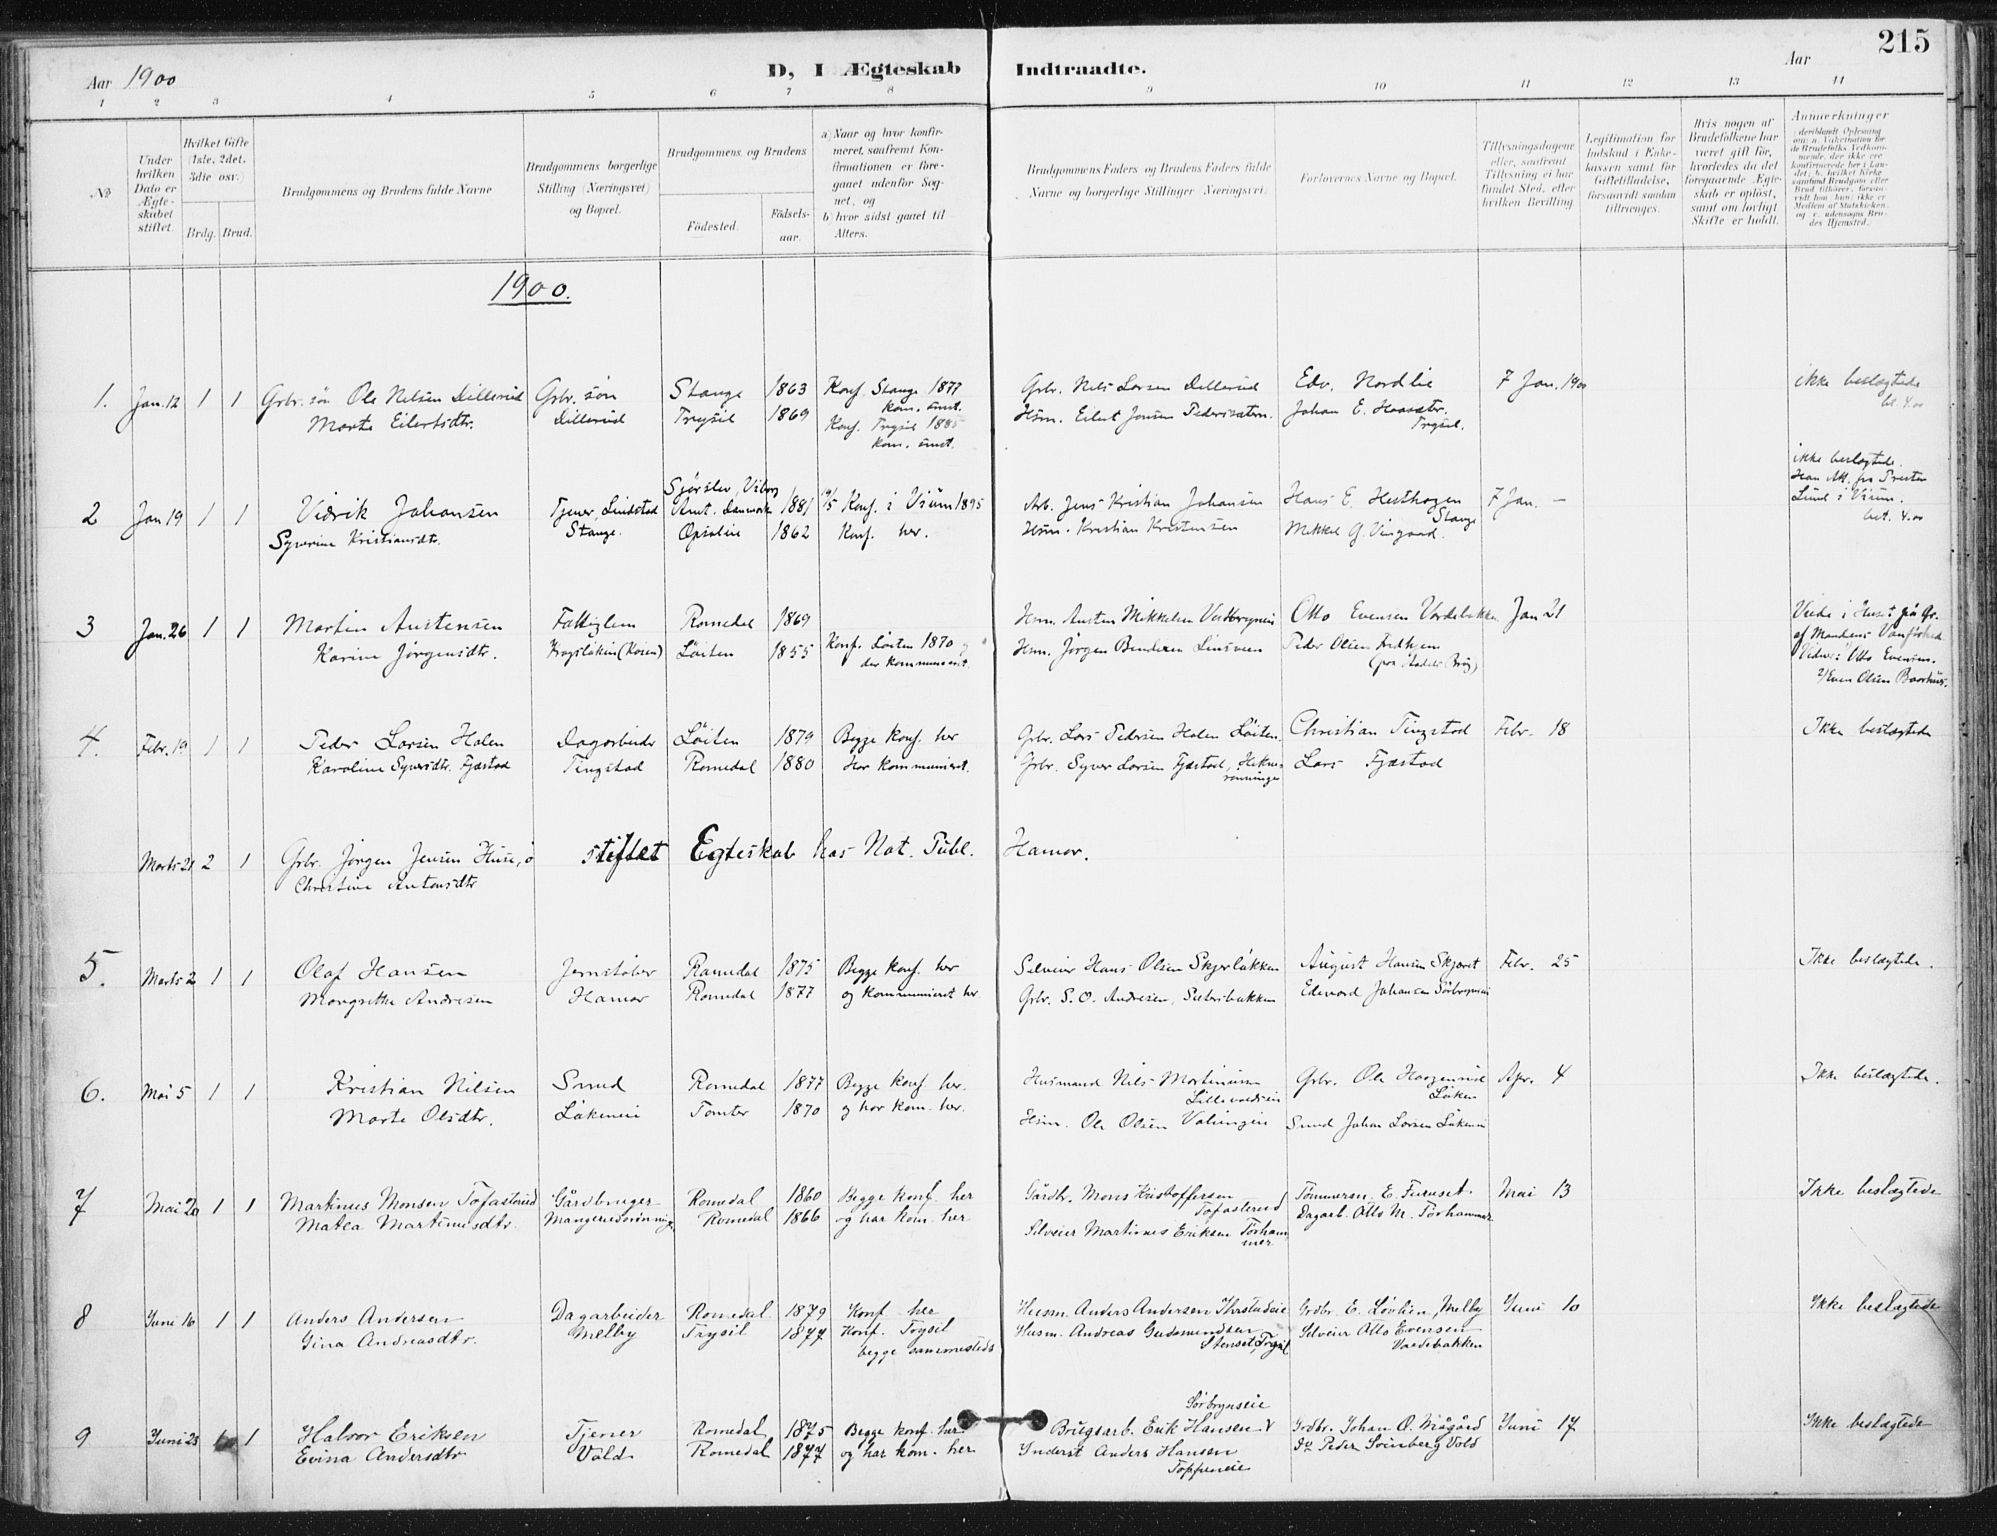 215
Aar 1900
D, I Ægteskab Indtraadte.
Aar
1 2 3 4 5 6 7 8 9 10 11 12 13 14
No
Under hvilken Dato er Ægteskabet stiftet.
Hvilket Gifte (1ste, 2det, 3die osv.)
Brdg. Brud.
Brudgommens og Brudens fulde Navne
Brudgommens borgerlige Stilling (Næringsvei) og Bopæl.
Brudgommens og Brudens
Födested.
Födsels-aar.
a) Naar og hvor konfirmeret, saafremt Konfirmationen er foregaaet udenfor Sognet, og
b) hvor sidst gaaet til Alters.
Brudgommens Faders og Brudens Faders fulde Navne og borgerlige Stillinger (Næringsvei)
Forlovernes Navne og Bopæl.
Tillysningsdagene eller, saafremt Tillysning ei har fundet Sted, efter hvilken Bevilling.
Legitimation for Indskud i Enkekassen samt for Giftetilladelse, forsaavidt saadan tiltrænges.
Hvis nogen af Brudefolkene har været gift för, hvorledes da det foregaaende Ægteskab er oplöst, samt om lovligt Skifte er holdt.
Anmærkninger
1900.
1. Jan. 12 1 1 Grbr. søn Ole Nilsen Dillerud Grbr. søn Stange 1863 Konf. Stange 1877 Grbr. Nils Larsen Dillerud Edv. Nordlie 7 Jan. 1900 ikke beslægtede
kom. smst. bet. 4.00
Marte Eilertsdtr. Dillerud Trysil 1869 Konf. Trysil 1885 Hsm. Eilert Jonsen Johan E. Haasæter
kom. smst. Trysil.
ikke beslægtede
2 Jan 19 1 1 Vidrik Johansen Tjener, Lindstad Sjørslev, Viborg Amt. Danmark 1881 Konf. i Vium 1895 Arb. Jens Kristian Johansen Hans E. Hesthagen 7 Jan. —
Stange
Syverine Kristiansdtr. Stange. Opsalie 1862 Konf. her. Hsm. Kristian Kristensen Mikkel G. Vingaard. bet. 4.00
3 Jan. 26 1 1 Martin Austensen Fattiglem Romedal 1869 Hsm. Austen Mikkelsen Otto Evensen Vardebakken Jan 21
Karine Jørgensdtr. Løiten 1855 Konf. Løiten 1870 og der kommuniceret. Hsm. Jørgen Bendixen Linsveen Peder Olsen
Vidner: Otto Evensen.
4. Febr. 19 1 1 Peder Larsen Holen Dagarbeider Løiten 1879 Begge konf. her Grbr. Lars Pedersen Holen Løiten. Christian Tingstad Febr. 18 Ikke beslægtede
Karoline Syversdtr. Fjæstad Tingstad Romedal 1880 Har kommuniceret. Grbr. Syver Larsen Fjæstad, Lars Fjæstad
Marts 21 2 1 Grbr. Jørgen Jensen Huse, ö stiftet Egteskab hos Not. Publ. Hamar.
Christine Antonsdtr
5. Marts 2 1 1 Olaf Hansen Jernstøber Romedal 1875 Begge konf. her Selveier Hans Olsen Skjerbakken August Hansen Skjæret Febr. 25 Ikke beslægtede.
Margrethe Andresen Hamar Romedal 1877 og kommuniceret her Grbr. S. O. Andresen, Sæterbakken Edevard Johansen Sörbryneie
6. Mai 5 1 1 Kristian Nilsen Smed Romedal 1877 Begge konf. her. Husmand Nils Martinsen Grbr. Ole Haagensrud Apr. 4 Ikke beslægtede.
Løken
Marte Olsdtr. Løkeneie Tomter 1870 og har kom. her. Hsm. Ole Olsen Smed Johan Larsen Løkeneie
7 Mai 20 1 1 Martinus Monsen Tofasterud Gårdbruger Romedal 1860 Begge konf. her Gårdbr. Mons Kristoffersen Tofasterud Tömmerm. E. Furuset. Mai 13 Ikke beslægtede
Matea Martinusdtr. Romedal 1866 og har kom. her Selveier Martinus Eriksen Törhammer Dagarb. Otto M. Törhammer
8 Juni 16 1 1 Anders Andersen Dagarbeider Romedal 1879 Konf. her Husm. Anders Andersen Grdbr. E. Lövlien, Melby Juni 10 Ikke beslægtede
Gina Andreasdtr. Melby Trysil 1877 Konf. Trysil Husm. Andreas Gudmundsen Selveier Otto Evensen
begge sammesteds Stenset, Trysil Vardebakken
Sörbryneeie
9 Juni 23 1 1 Halvor Eriksen Tjener Romedal 1875 Begge konf. her Brugsarb. Erik Hansen Grdbr. Johan O. Mågård Juni 17 Ikke beslægtede
Evina Andersdtr Vold Romedal 1877 og har kom. her Inderst Anders Hansen Do Peder Svinberg Vold
Toppeneie